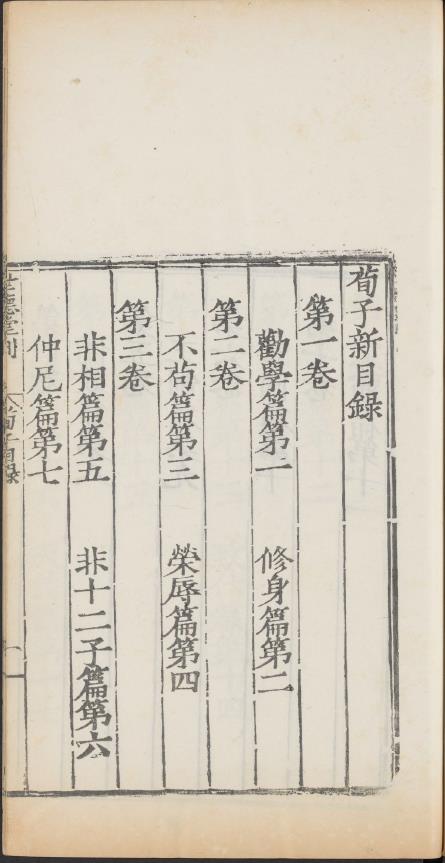 荀子新目錄
第一卷
勸學篇第一 修身篇第二
第二卷
不茍篇第三 榮辱篇第四
第三卷
非相篇第五 非十二子篇第六
仲尼篇第七
世德堂刊 荀子目錄 一